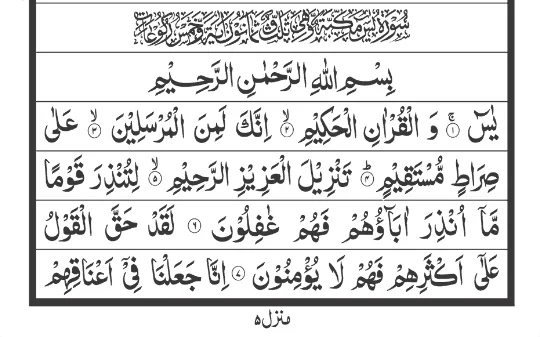 سُوۡرَةُ يٰسٓ مَكِّيَّةٌ وَّهِيَ ثَلَاثٌ وَّثَمَانُوۡنَ اٰيَةً وَّخَمۡسُ رُكُوۡعَاتٍ
بِسۡمِ اللّٰهِ الرَّحۡمٰنِ الرَّحِيۡمِ
يٰسٓ ۚ﴿۱﴾ وَ الۡقُرۡاٰنِ الۡحَكِيۡمِ ۙ﴿۲﴾ اِنَّكَ لَمِنَ الۡمُرۡسَلِيۡنَ ۙ﴿۳﴾ عَلٰى
صِرَاطٍ مُّسۡتَقِيۡمٍ ؕ﴿۴﴾ تَنۡزِيۡلَ الۡعَزِيۡزِ الرَّحِيۡمِ ۙ﴿۵﴾ لِتُنۡذِرَ قَوۡمًا
مَّاۤ اُنۡذِرَ اٰبَآؤُهُمۡ فَهُمۡ غٰفِلُوۡنَ ﴿۶﴾ لَقَدۡ حَقَّ الۡقَوۡلُ
عَلٰٓى اَكۡثَرِهِمۡ فَهُمۡ لَا يُؤۡمِنُوۡنَ ﴿۷﴾ اِنَّا جَعَلۡنَا فِىۡۤ اَعۡنَاقِهِمۡ
منزل ۵